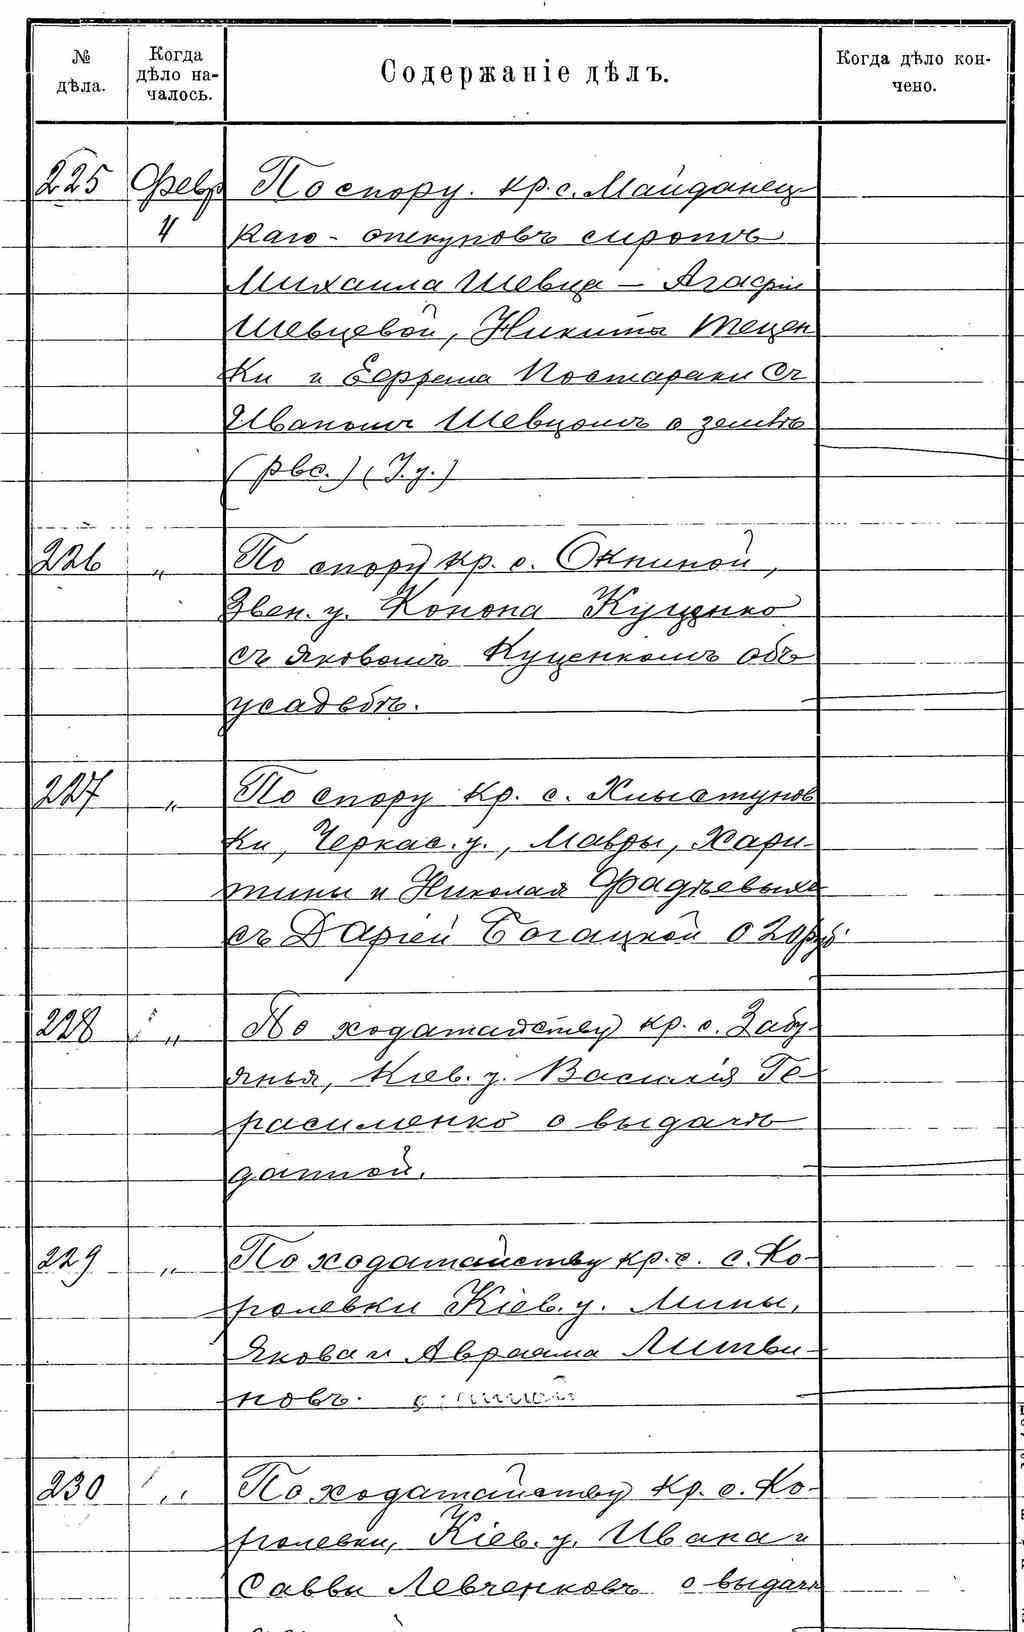 № дѣла.
Когда дѣло на-
чалось.
Содержаніе дѣлъ.
Когда дѣло кон-
чено.
225 Февр По спору. кр. с. Майданец-
4 каго - опекуновъ сиротъ
Михаила Шевца — Агафіи
Шевцевой, Никиты Тецен
ки и Ефрема Постараки съ
Иваномъ Шевцомъ о землѣ
(рвс.) (I. у.)
226 „ По спору кр. с. Окниной,
Звен. у. Конона Куценко
съ Яковомъ Куценкомъ объ
усадьбѣ.
227 „ По спору кр. с. Хлыстунов
ки, Черкас. у., Мавры, Хари-
тины и Николая Фадѣевыхъ
съ Дарьей Богацкой о 20 руб
228 „ По ходатайству кр. с. Забу-
янья, Кіев. у. Василія Ге-
расименко о выдачѣ
данной.
229 „ По ходатайству кр. с. с. Ко-
ролевки Кіев. у. Мины,
Якова и Авраама Литви-
новъ.
230 „ По ходатайству кр. с. Ко-
ролевки, Кіев. у. Ивана и
Саввы Левченковъ о выдачѣ